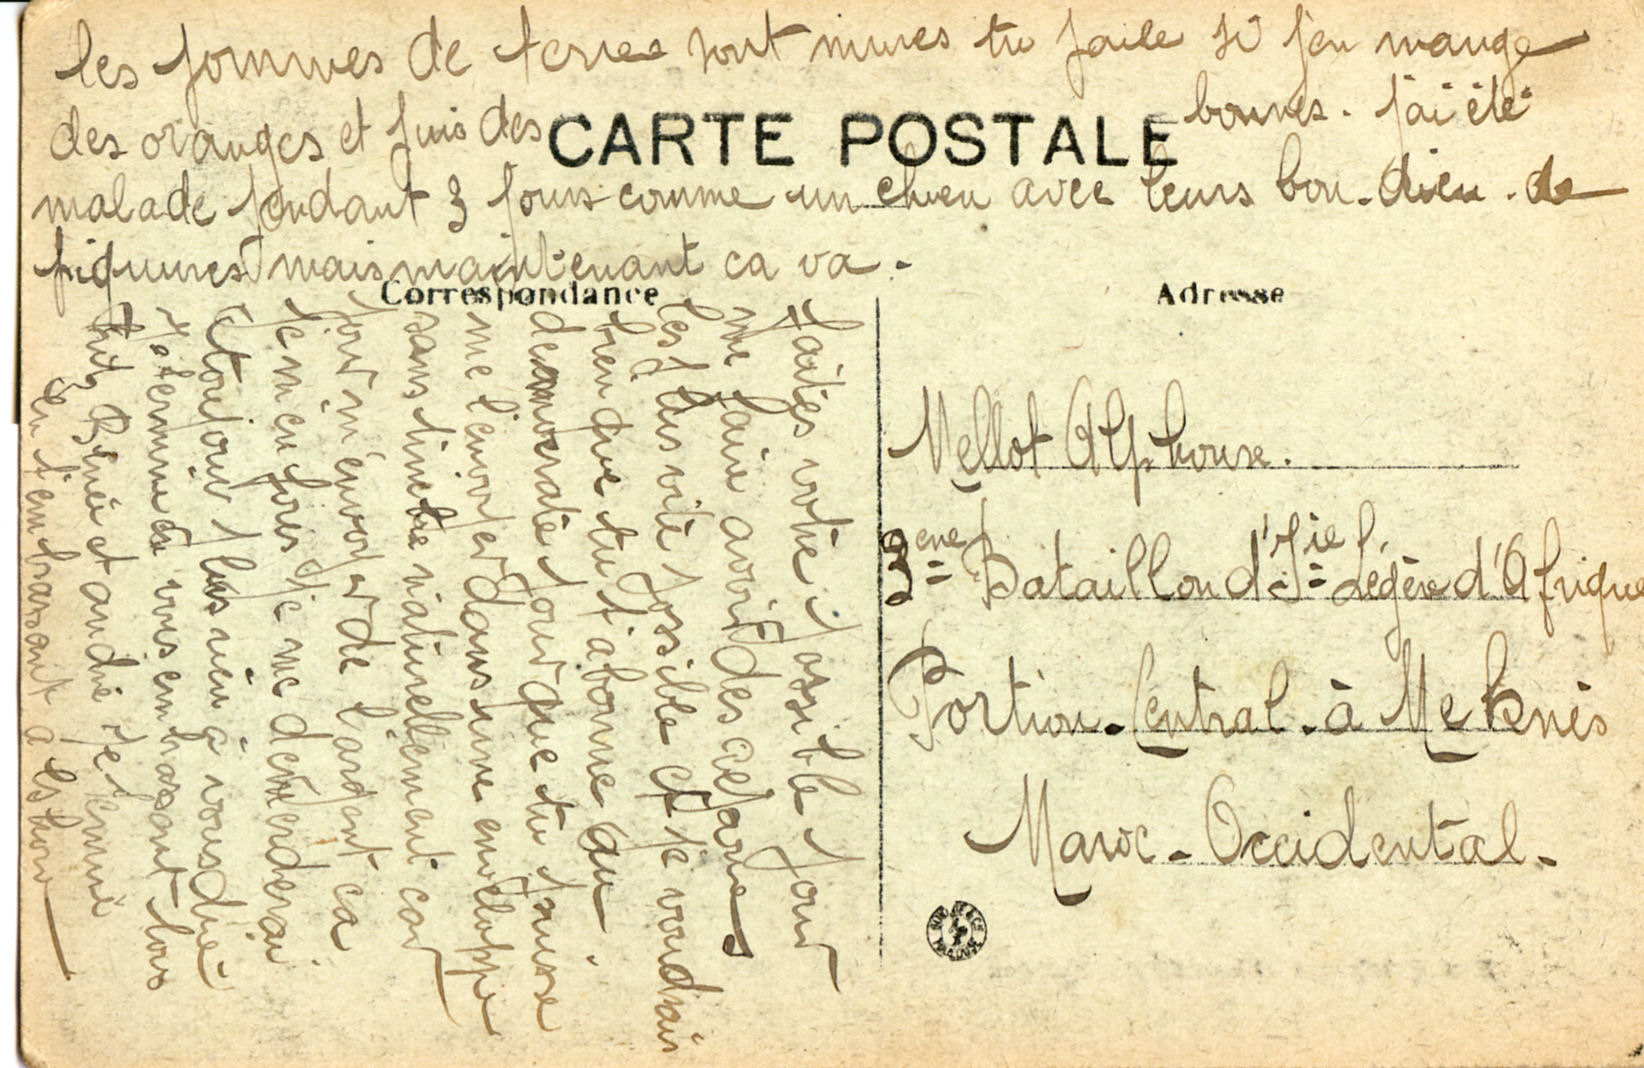 les pommes de terres sont mures tu parle si j'en mange
des oranges et puis des bonnes. j'ai été
CARTE POSTALE
malade pendant 3 jours comme un chien avec leurs bon-dieu. de
piqures mais maintenant ca va.
Correspondance
Faites votre possible pour
me faire avoir des
les plus vite possible et je voudrais
bien que tu t'abonne au
pour que tu puisse
me l'envoyer dans une enveloppe
sans timbre naturellement car
pour m'envoyer de l'argent ca
je me
et toujour plus rien à vous dire
Je termine en vous embrasant tous
René et andré Je termine
en t'embrasant
Adresse
Mellot Alphonse.
3eme Bataillon d'Inie Légère d'Afrique
Portion-Central-à Meknès
Maroc-Occidental-